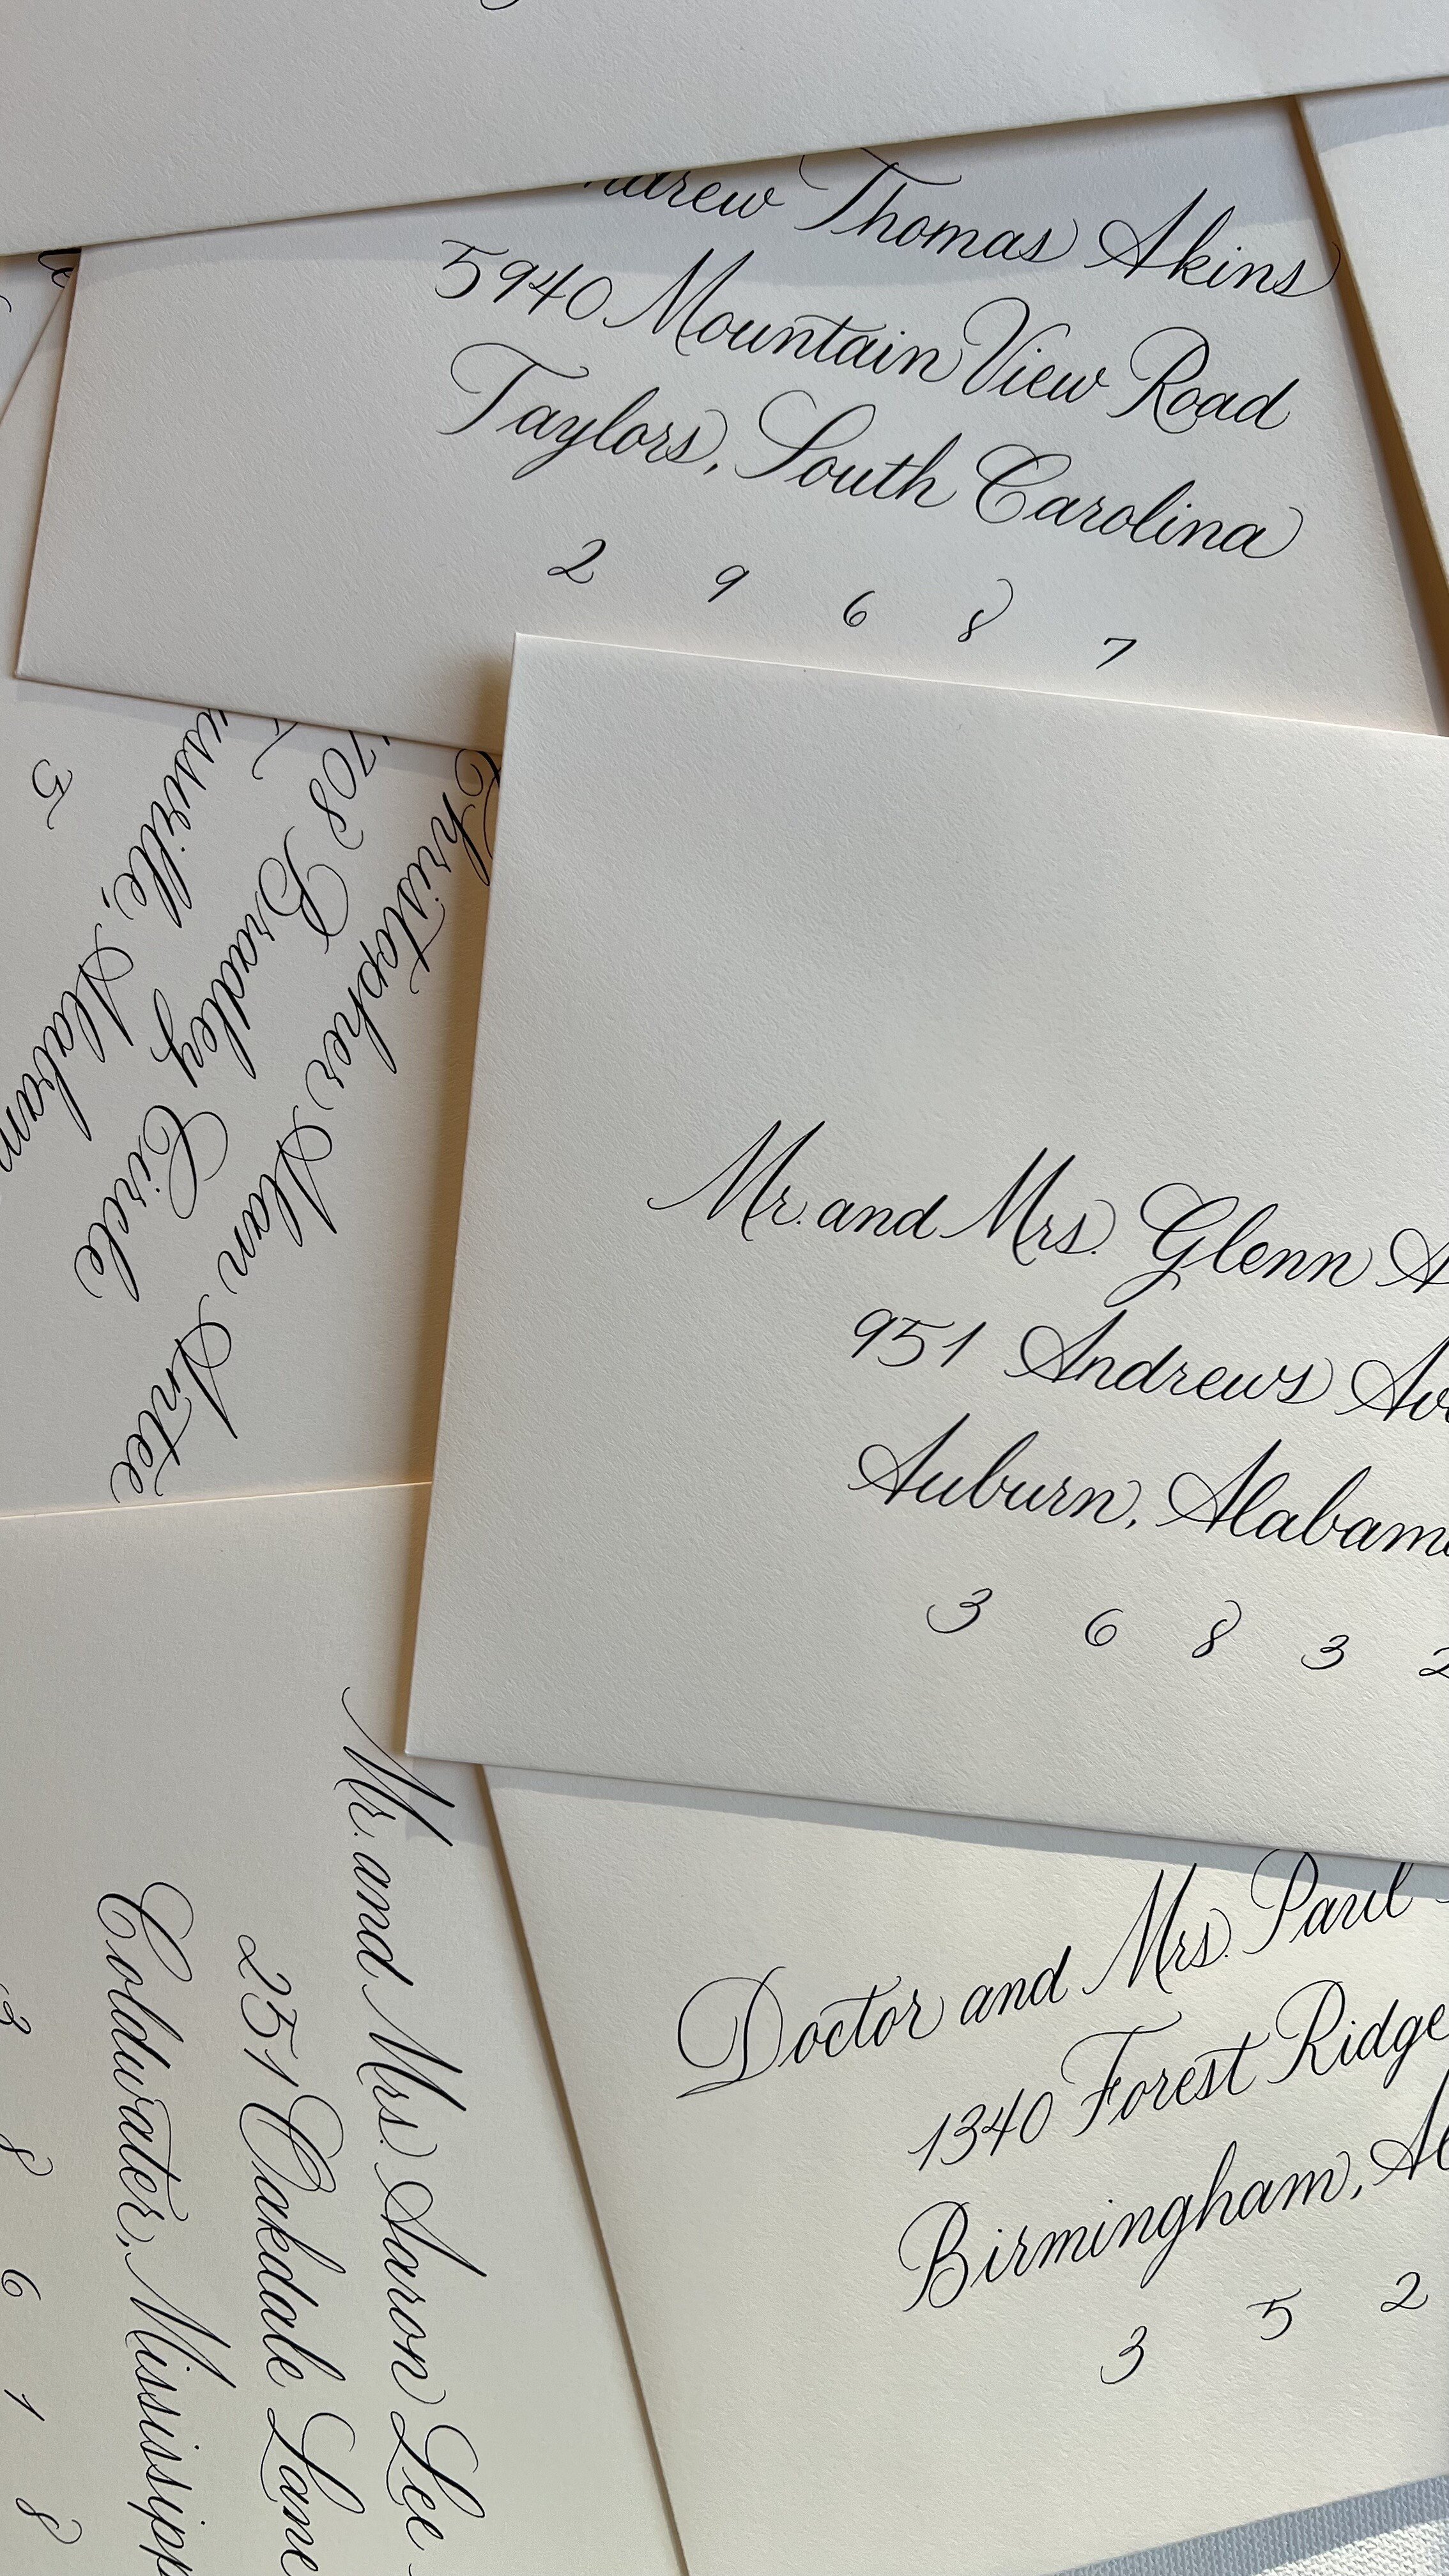 Thomas Akins
5940 Mountain View Road
Taylors, South Carolina
2 9 6 8 7
Christopher Alan
708 Bradley Circle
3
Mr. and Mrs. Glenn
951 Andrews
Auburn, Alabama
3 6 8 3 2
Mr. and Mrs. Aaron Lee
251 Oakdale Lane
Coldwater, Mississipp
3 8 6 1 8
Doctor and Mrs. Paul
1340 Forest Ridge
Birmingham, Al
3 5 2